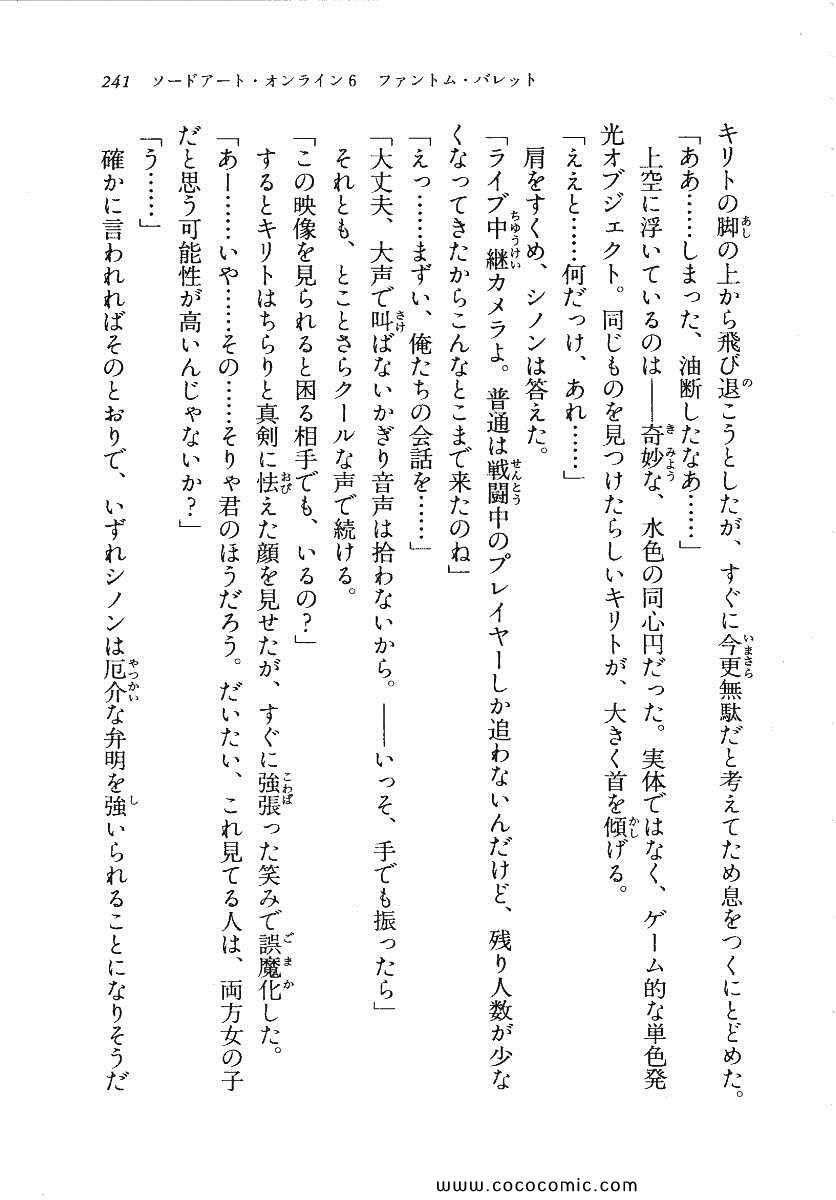 241　ソードアート・オンライン6　ファントム・バレット
キリトの脚の上から飛び退こうとしたが、すぐに今更無駄だと考えてため息をつくにとどめた。
「ああ……しまった、油断したなあ……」
上空に浮いているのは――奇妙な、水色の同心円だった。実体ではなく、ゲーム的な単色発
光オブジェクト。同じものを見つけたらしいキリトが、大きく首を傾げる。
「ええと……何だっけ、あれ……」
肩をすくめ、シノンは答えた。
「ライブ中継カメラよ。普通は戦闘中のプレイヤーしか追わないんだけど、残り人数が少な
くなってきたからこんなとこまで来たのね」
「えっ……まずい、俺たちの会話を……」
「大丈夫、大声で叫ばないかぎり音声は拾わないから。――いっそ、手でも振ったら」
それとも、とことさらクールな声で続ける。
「この映像を見られると困る相手でも、いるの？」
するとキリトはちらりと真剣に怯えた顔を見せたが、すぐに強張った笑みで誤魔化した。
「あー……いや……その……そりゃ君のほうだろう。だいたい、これ見てる人は、両方女の子
だと思う可能性が高いんじゃないか？」
「う……」
確かに言われればそのとおりで、いずれシノンは厄介な弁明を強いられることになりそうだ
www.cococomic.com